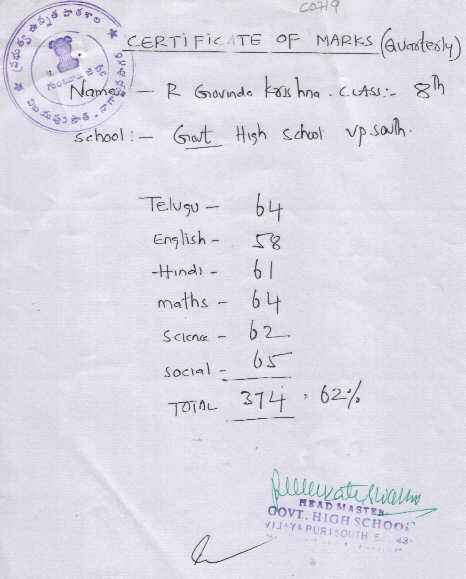 C0719
CERTIFICATE OF MARKS (Quarterly)
Name — R Govinda Krishna. CLASS:- 8th
School :— Govt High School vp.south.
Telugu — 64
English — 58
Hindi — 61
maths — 64
Science — 62
social — 65
TOTAL 374 62%
HEAD MASTER
GOVT. HIGH SCHOOL
VIJAYAPURI SOUTH